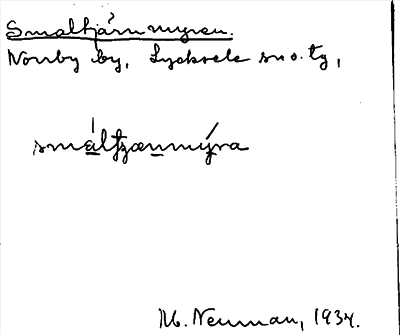 Smaltjärnmyren.
Norrby by, Lycksele sn o. tg,
smáltjænnmýra
M. Neuman, 1937.